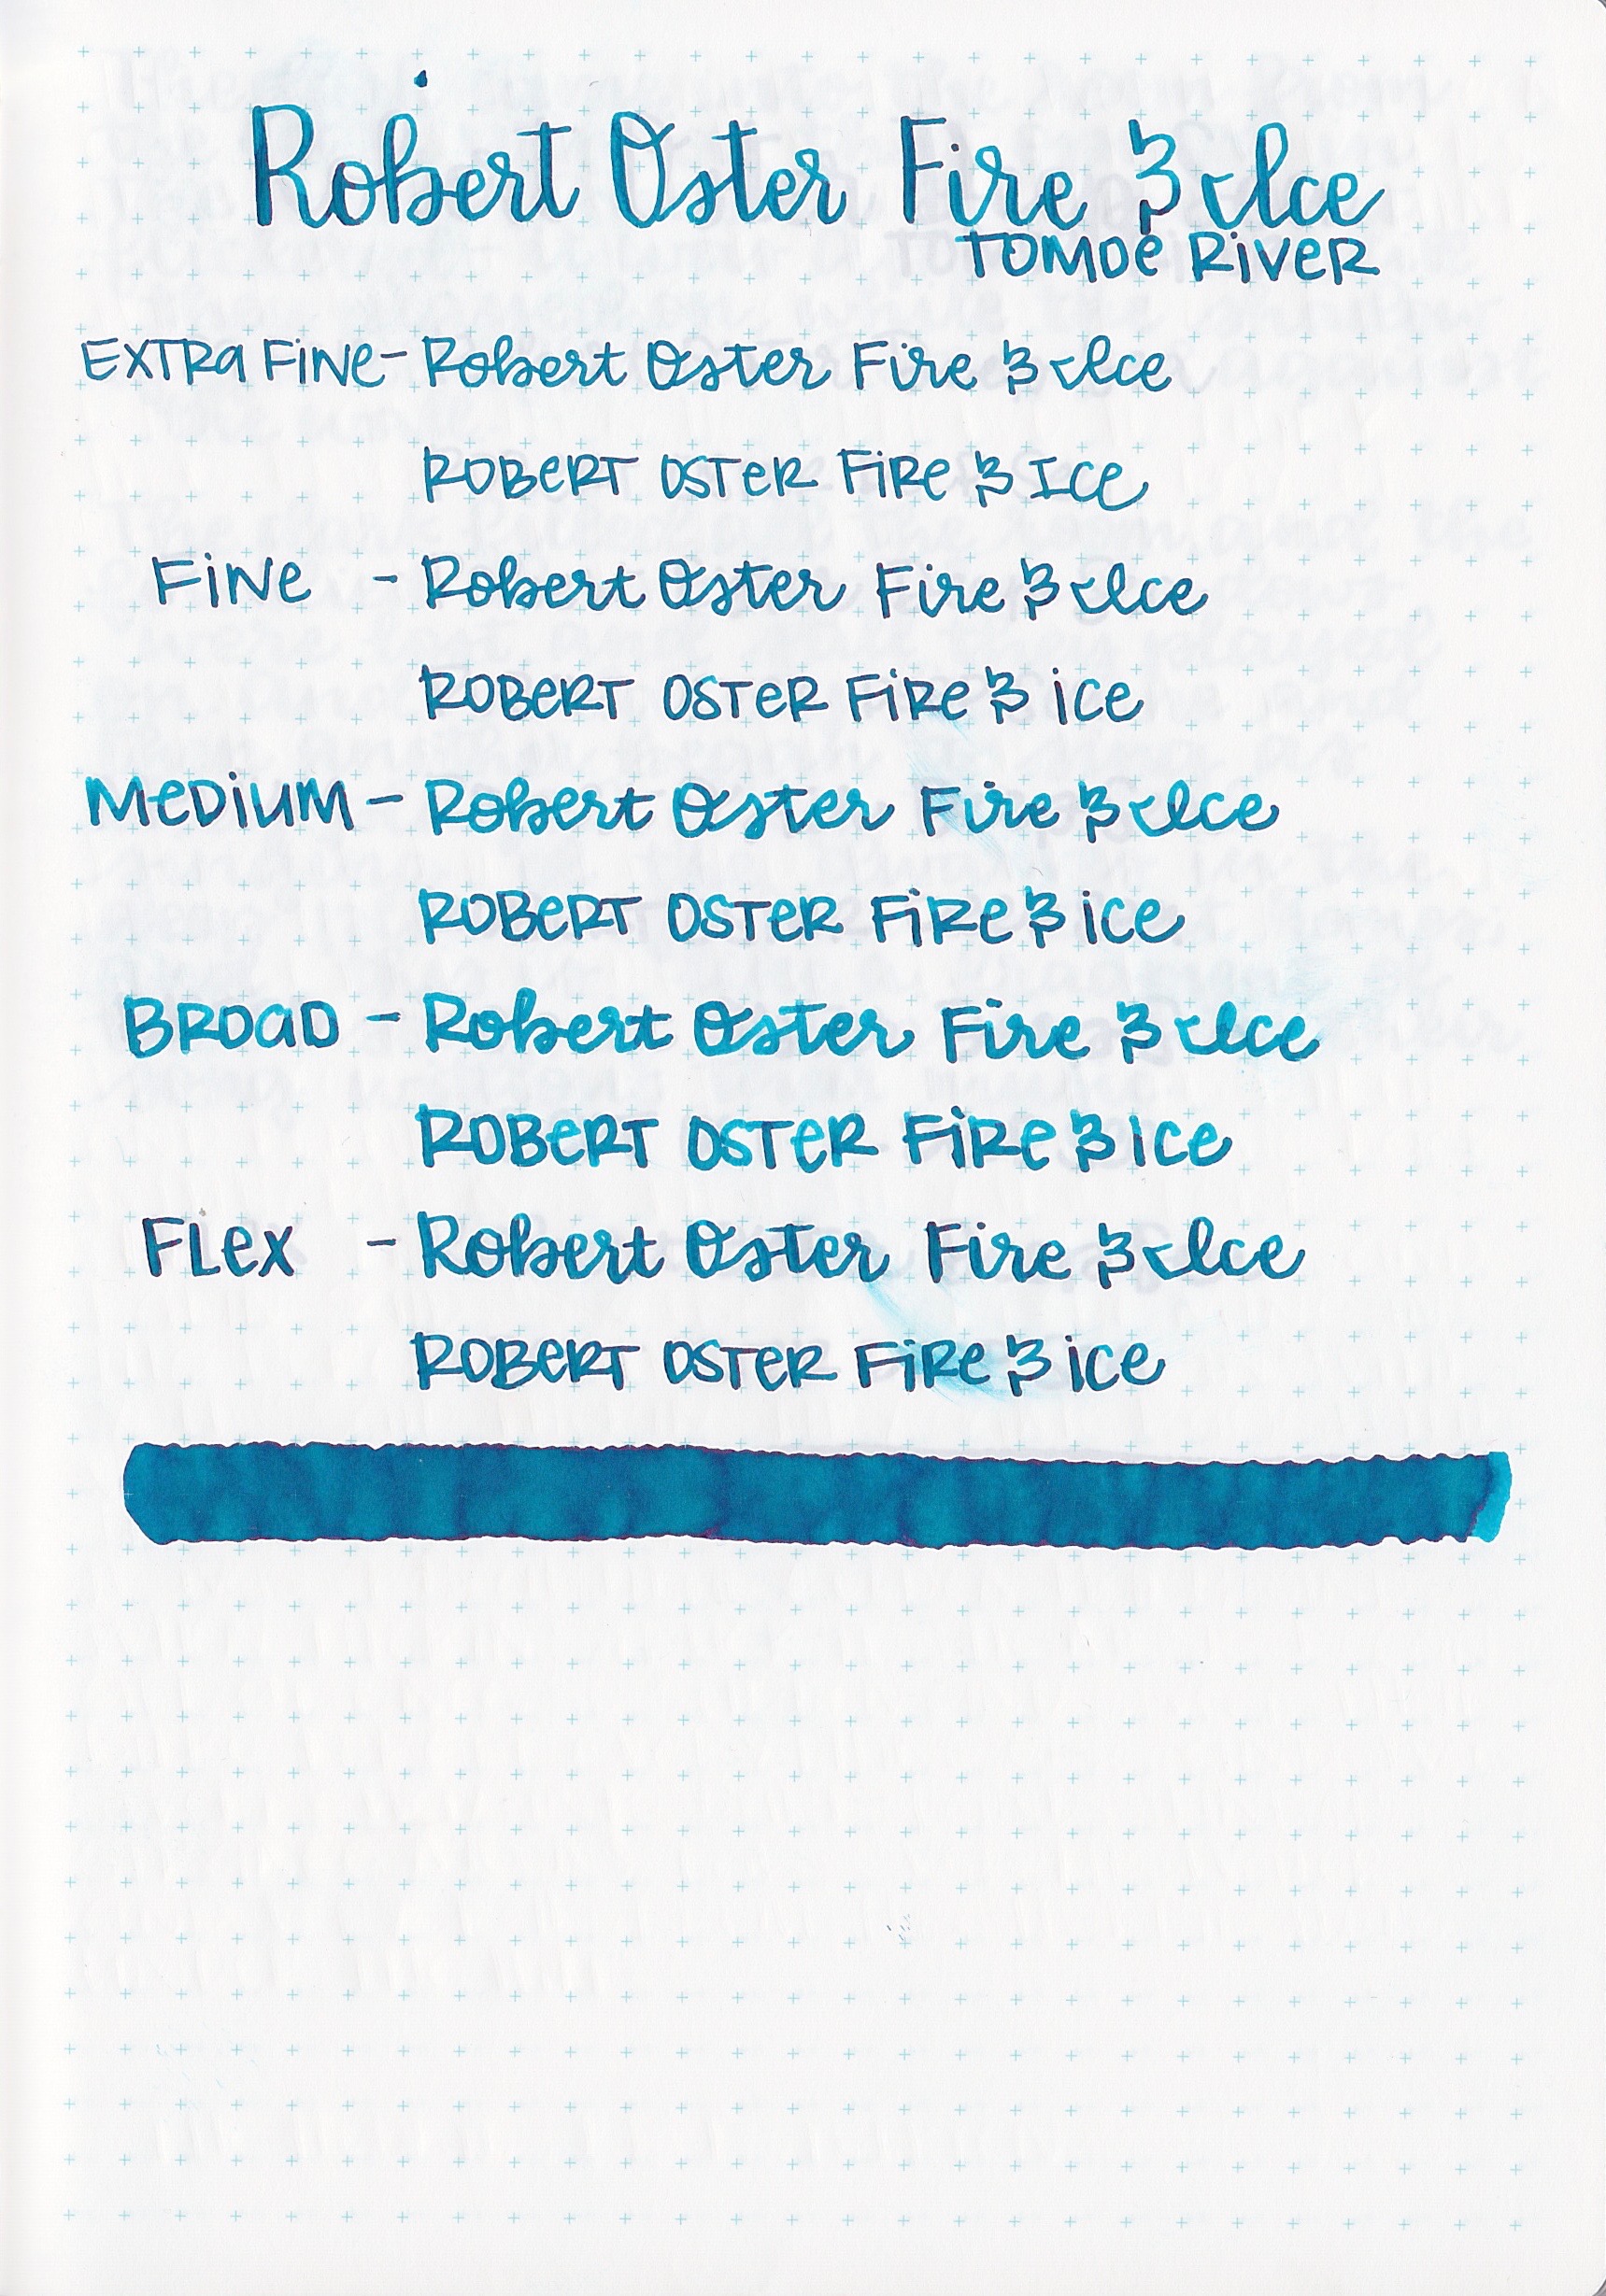 Robert Oster Fire & Ice
TOMOE RiVER
EXTRa FiNe - Robert Oster Fire & Ice
ROBeRT OSTeR FiRe & Ice
FiNe - Robert Oster Fire & Ice
ROBeRT OSTeR FiRe & ice
MeDiuM - Robert Oster Fire & Ice
ROBeRT OSTeR FiRe & ice
BROaD - Robert Oster Fire & Ice
ROBeRT OSTeR FiRe & Ice
FLex - Robert Oster Fire & Ice
ROBeRT OSTeR FiRe & ice